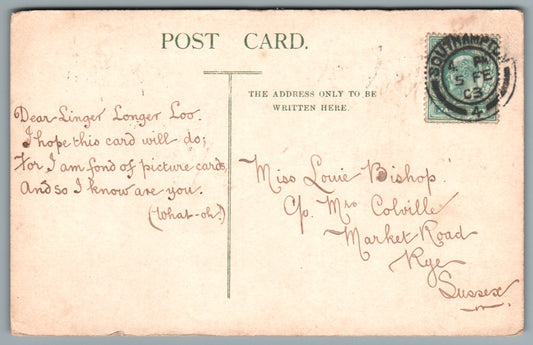 POST CARD.
THE ADDRESS ONLY TO BE
WRITTEN HERE.
SOUTHAMPTON
4 PM
5 FE
03
4
Dear Linger Longer Loo.
I hope this card will do;
For I am fond of picture cards,
And so I know are you.
(What-oh!)
Miss Louie Bishop.
C/o. Mrs Colville
Market Road
Rye
Sussex